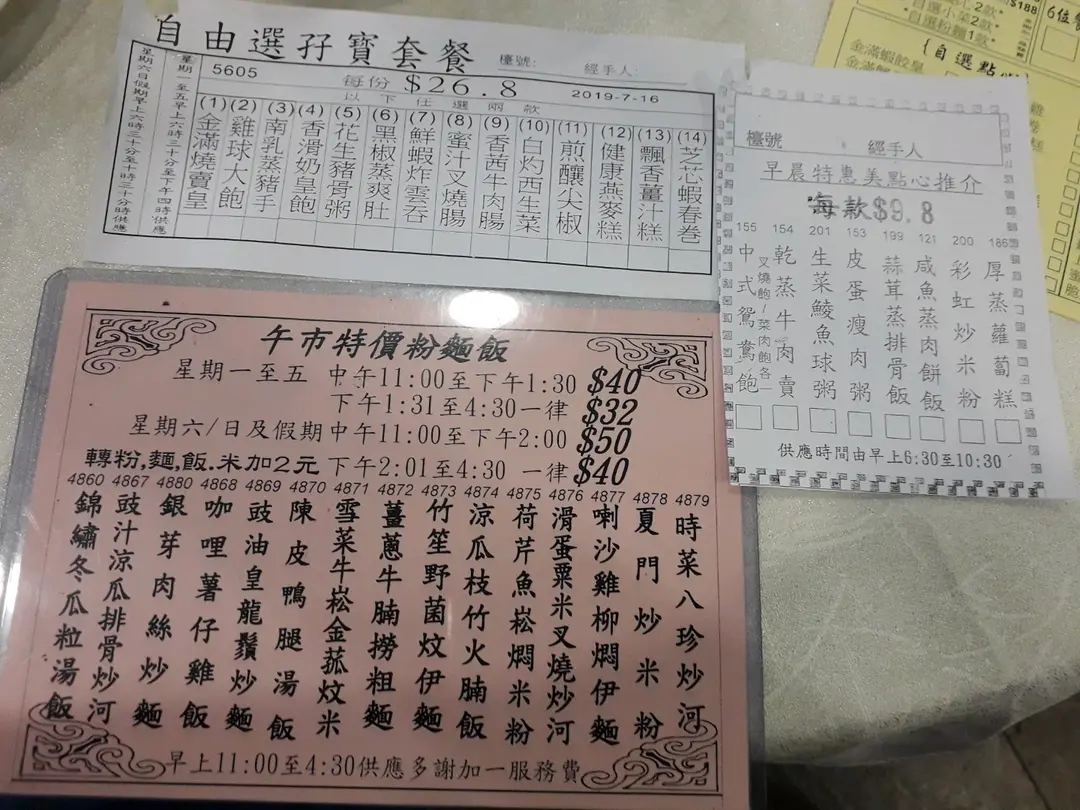 自由選孖寶套餐
檯號:
經手人:
5605
每份 $26.8
2019-7-16
以下任選兩款
星期一至五早上六時三十分至下午四時供應
星期六日假期早上六時三十分至十時三十分供應
(1) 金滿燒賣皇
(2) 雞球大飽
(3) 南乳蒸豬手
(4) 香滑奶皇飽
(5) 花生豬骨粥
(6) 黑椒蒸爽肚
(7) 鮮蝦炸雲吞
(8) 蜜汁叉燒腸
(9) 香茜牛肉腸
(10) 白灼西生菜
(11) 煎釀尖椒
(12) 健康燕麥糕
(13) 飄香薑汁糕
(14) 芝芯蝦春卷
檯號
經手人
早晨特惠美點心推介
每款$9.8
155 中式鴛鴦飽
叉燒飽/菜肉飽各一
154 乾蒸牛肉賣
201 生菜鯪魚球粥
153 皮蛋瘦肉粥
199 蒜茸蒸排骨飯
121 咸魚蒸肉餅飯
200 彩虹炒米粉
186 厚蒸蘿蔔糕
供應時間由早上6:30至10:30
$188
自選小菜2款*
*自選粉麵1款*
6位
{自選點
金滿蝦餃皇
午市特價粉麵飯
星期一至五 中午11:00至下午1:30 $40
下午1:31至4:30一律 $32
星期六/日及假期中午11:00至下午2:00 $50
轉粉,麵,飯.米加2元 下午2:01至4:30 一律 $40
4860 錦繡冬瓜粒湯飯
4867 豉汁涼瓜排骨炒河
4880 銀芽肉絲炒麵
4868 咖哩薯仔雞飯
4869 豉油皇龍鬚炒麵
4870 陳皮鴨腿湯飯
4871 雪菜牛崧金菰炆米
4872 薑蔥牛腩撈粗麵
4873 竹笙野菌炆伊麵
4874 涼瓜枝竹火腩飯
4875 荷芹魚崧燜米粉
4876 滑蛋粟米叉燒炒河
4877 喇沙雞柳燜伊麵
4878 夏門炒米粉
4879 時菜八珍炒河
早上11:00至4:30供應多謝加一服務費